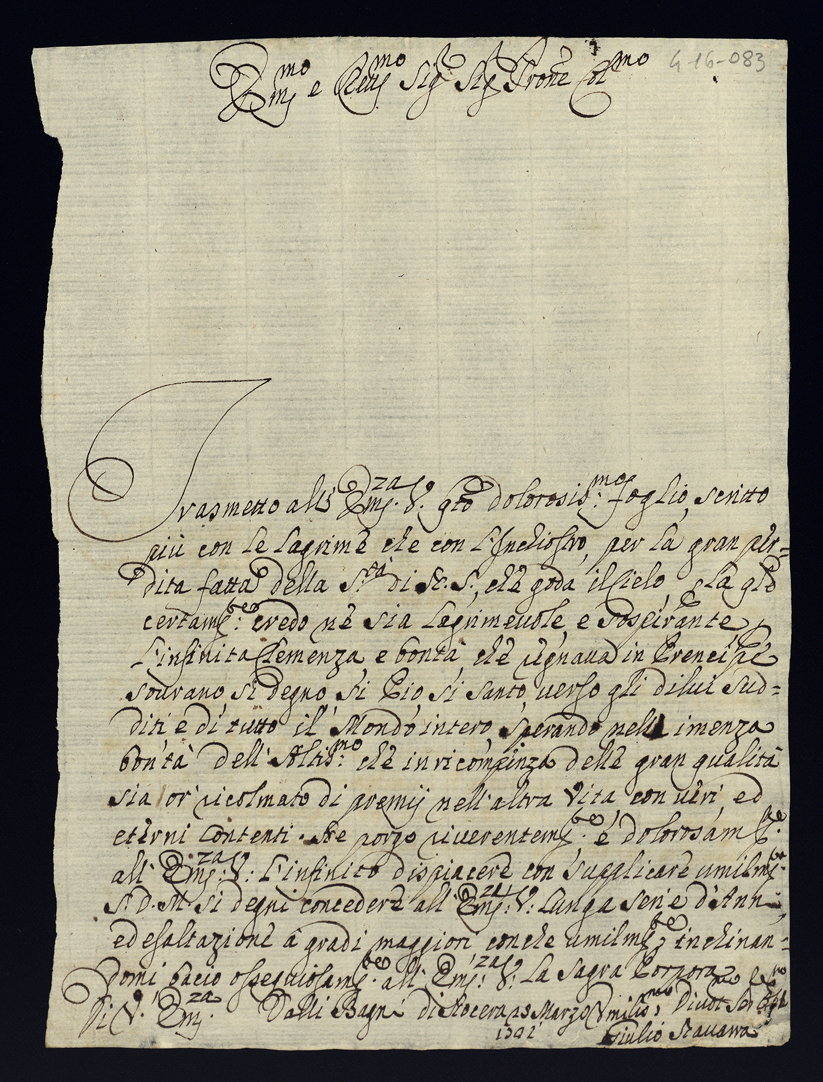 G 16-083
Em.mo e Rev.mo Sig.r Sig.r Prone Col.mo
Trasmetto all' Em.za V. q.to dolorosis.mo foglio, scritto
più con le lagrime che con l'Inchiostro, per la gran per=
dita fatta della S.tà di N. S., che goda il Cielo,
certam.te credo ne sia lagrimevole, e sospirante
l'infinita Clemenza e bontà che regnava in Prencipe
sovrano sì degno sì Pio sì Santo verso gli dilui Sud=
diti e di tutto il Mondo intero sperando nell imenza
bontà dell'Altis.mo che in ricompenza delle gran qualità
sia or' ricolmato di premij nell'altra Vita con veri, ed
eterni contenti. Ne porgo riverentem.te e dolorosam.te
all' Em.za V. l'infinito dispiacere con supplicare umilm.te
S. D. M. si degni concedere all' Em.za V. lunga serie d'Anni,
ed esaltazione a gradi maggiori con che umilm.te inchinan=
domi bacio ossequiosam.te all' Em.za V. la Sagra Porpora
Di V. Em.za Dalli Bagni di Nocera Marzo Umilis.mo Divot.mo
Giulio